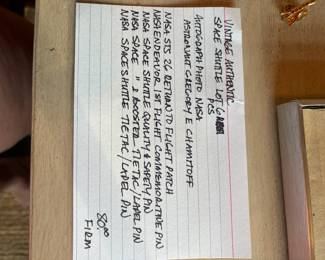 VINTAGE AUTHENTIC
SPACE SHUTTLE LOT 6
PCS
AUTOGRAPH PHOTO NASA
ASTRONAUT GREGORY E CHAMITOFF
NASA STS 26 RETURN TO FLIGHT PATCH
NASA ENDEAVOR 1ST FLIGHT COMMEMORITIVE PIN
NASA SPACE SHUTTLE QUALITY & SAFETY PIN
NASA SPACE " 2 BOOSTER TIE TAC/LAPEL PIN
NASA SPACE SHUTTLE TIE TAC/LAPEL PIN
80.00
FIRM